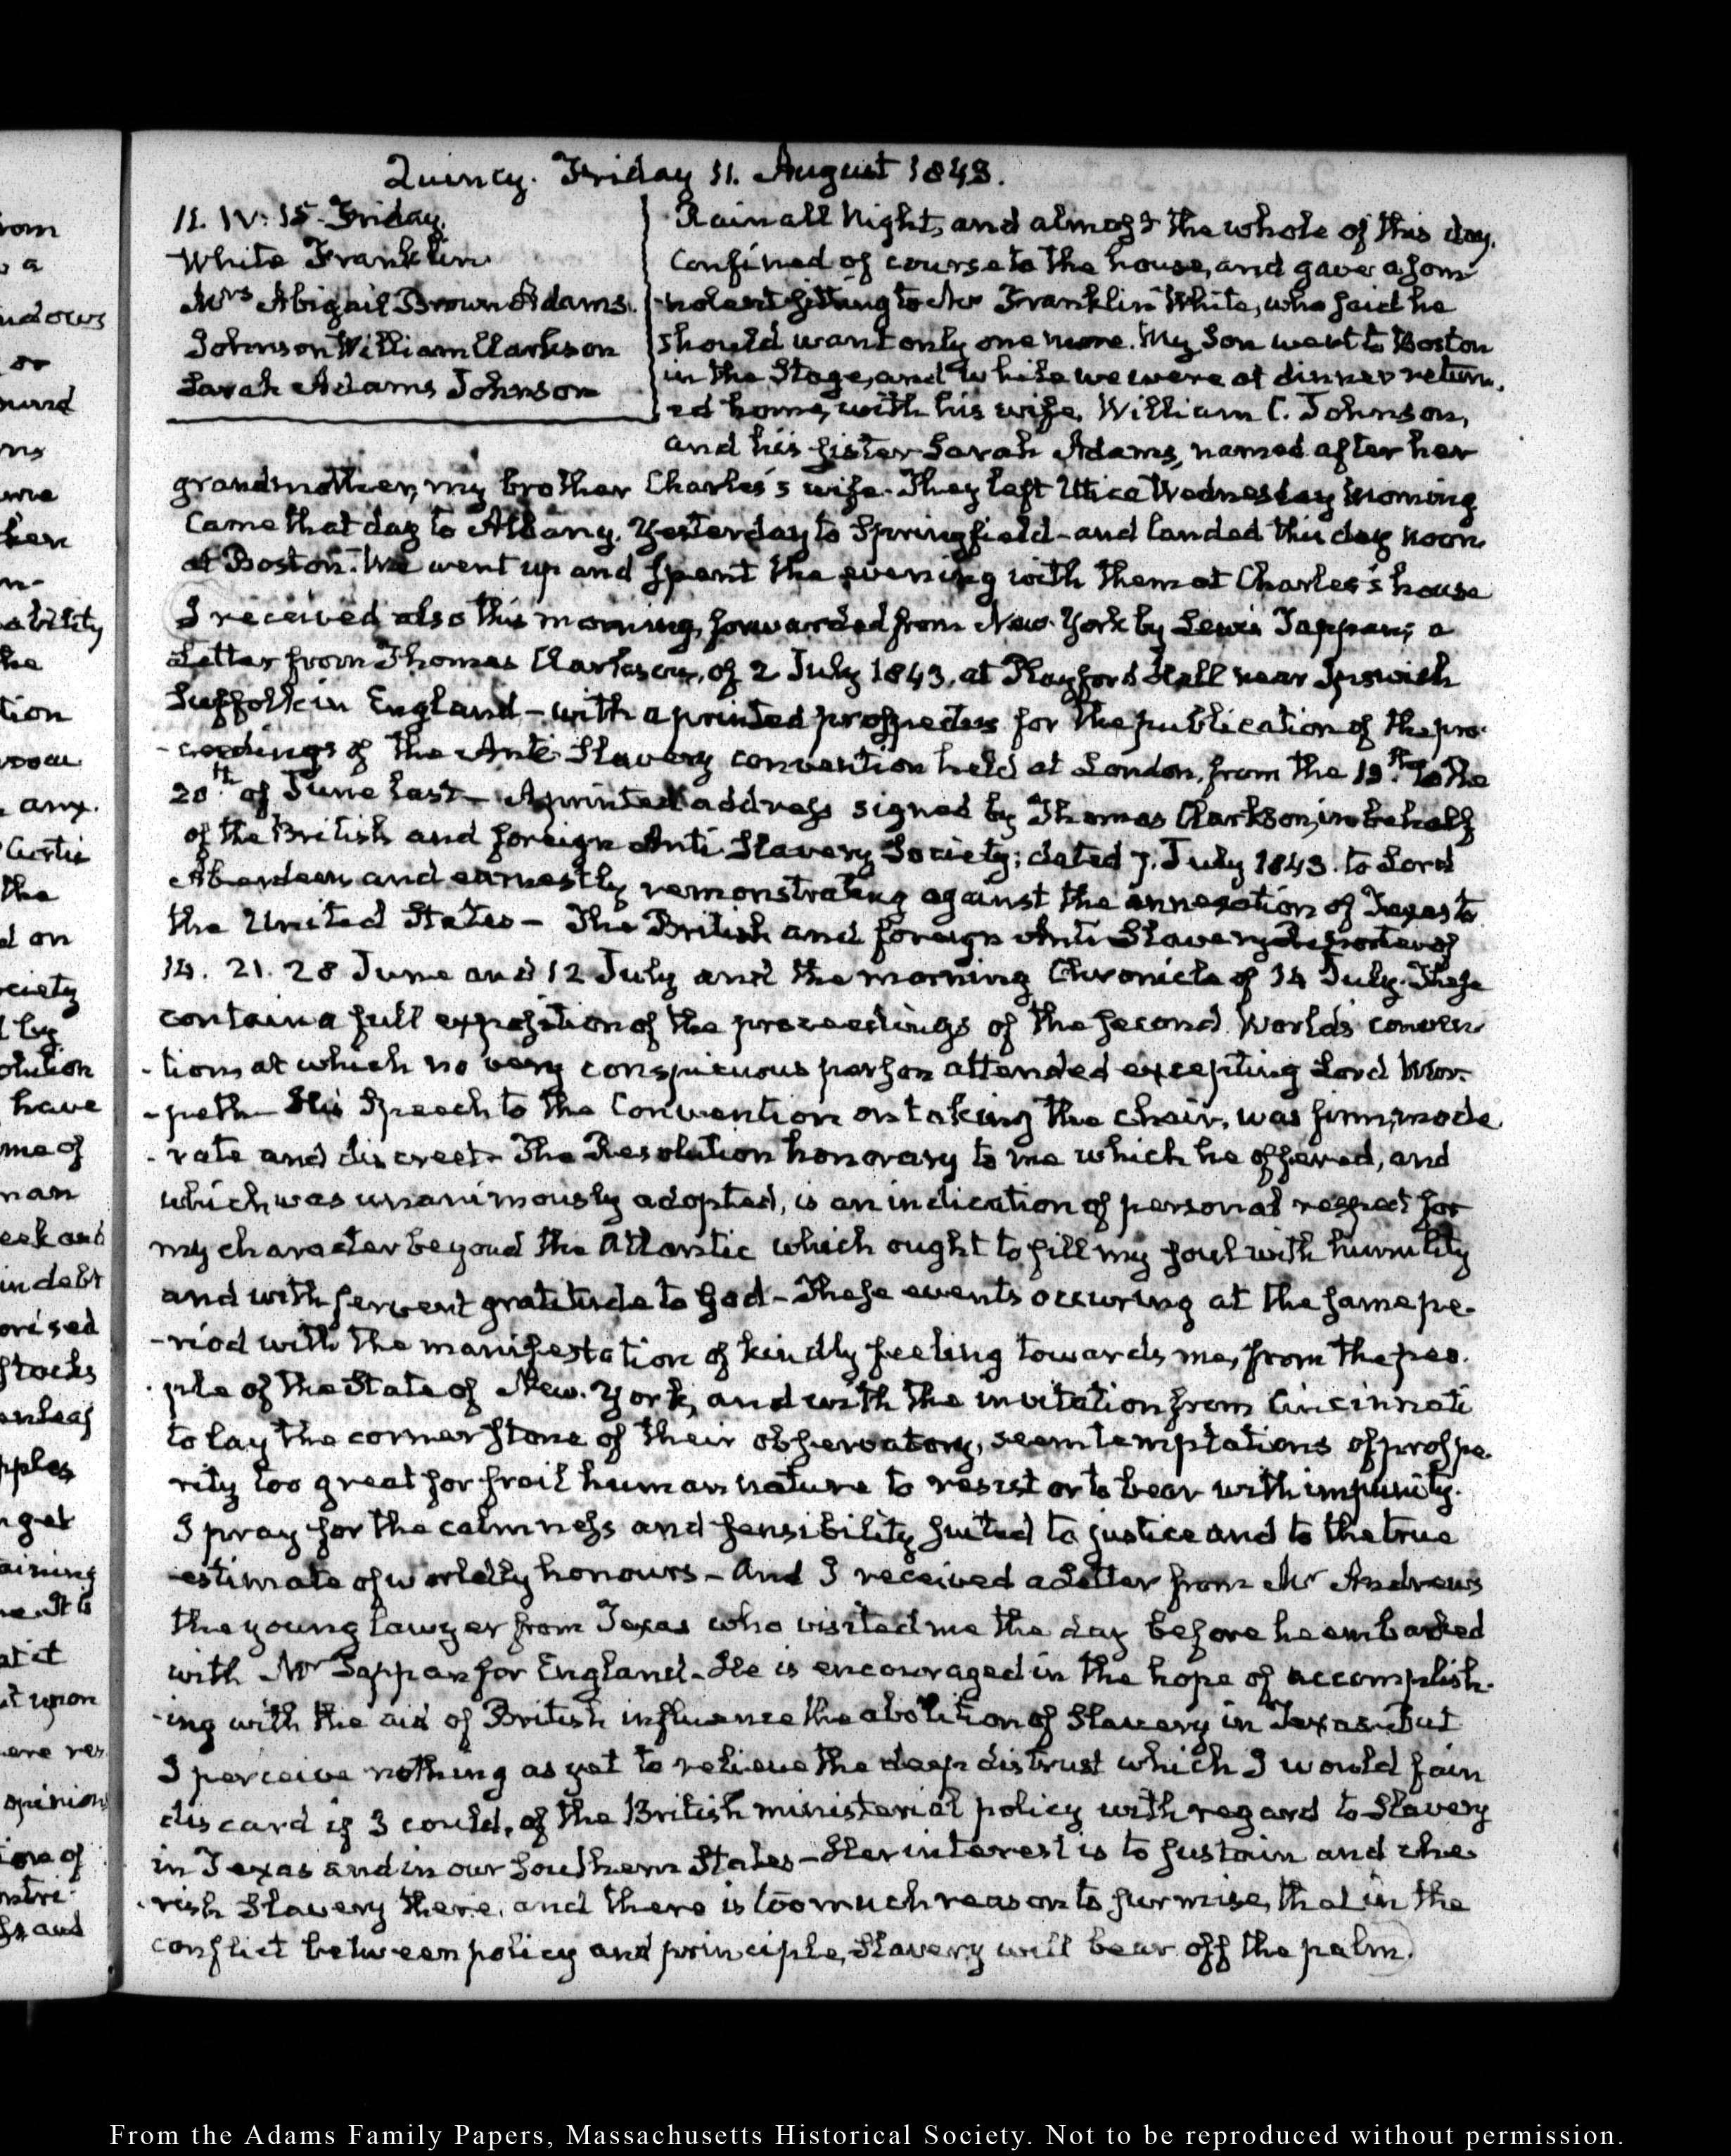 Quincy. Friday 11. August 1843.
11. IV: 15. Friday.
White Franklin
Mrs Abigail Brown Adams.
Johnson William Clarkson
Sarah Adams Johnson
Rain all Night, and almost the whole of this day.
Confined of course to the house, and gave a som-
nolent sitting to Mr Franklin White, who said he
should want only one more. My Son went to Boston
in the Stage, and while we were at dinner return-
ed home, with his wife, William C. Johnson,
and his sister Sarah Adams, named after her
grandmother, my brother Charles's wife. They left Utica Wednesday morning
Came that day to Albany. Yesterday to Springfield - and landed this day noon
at Boston. We went up and spent the evening with them at Charles's house
I received also this morning, forwarded from New-York by Lewis Tappan; a
Letter from Thomas Clarkson, of 2 July 1843. at Playford Hall near Ipswich
Suffolk in England - with a printed prospectus for the publication of the pro-
-ceedings of the Anti Slavery convention held at London, from the 13th to the
20th of June last - A printed address signed by Thomas Clarkson, in behalf
of the British and foreign Anti Slavery Society; dated 7. July 1843. to Lord
Aberdeen and earnestly remonstrating against the annexation of Texas to
the United States - The British and foreign Anti Slavery Reporter of
14. 21. 28 June and 12 July and the morning Chronicle of 14 July. These
contain a full exposition of the proceedings of the second Worlds conven
-tion, at which no very conspicuous person attended excepting Lord Mor-
-peth - His Speech to the Convention on taking the chair, was firm, mode
-rate and discreet - The Resolution honorary to me which he offered, and
which was unanimously adopted, is an indication of personal respect for
my character beyond the Atlantic which ought to fill my soul with humility
and with fervent gratitude to God - These events occurring at the same pe-
-riod with the manifestation of kindly feeling towards me, from the peo-
-ple of the State of New-York, and with the invitation from Cincinnati
to lay the corner stone of their observatory, seem temptations of prospe-
rity too great for frail human nature to resist or to bear with impunity.
I pray for the calmness and sensibility suited to justice and to the true
estimate of worldly honours - And I received a Letter from Mr Andrews
the young lawyer from Texas who visited me the day before he embarked
with Mr Tappan for England - He is encouraged in the hope of accomplish-
-ing with the aid of British influence the abolition of Slavery in Texas - But
I perceive nothing as yet to relieve the deep distrust which I would fain
discard if I could, of the British ministerial policy with regard to Slavery
in Texas and in our Southern States - Her interest is to sustain and che-
-rish Slavery there, and there is too much reason to surmise, that in the
conflict between policy and principle, Slavery will bear off the palm.
From the Adams Family Papers, Massachusetts Historical Society. Not to be reproduced without permission.